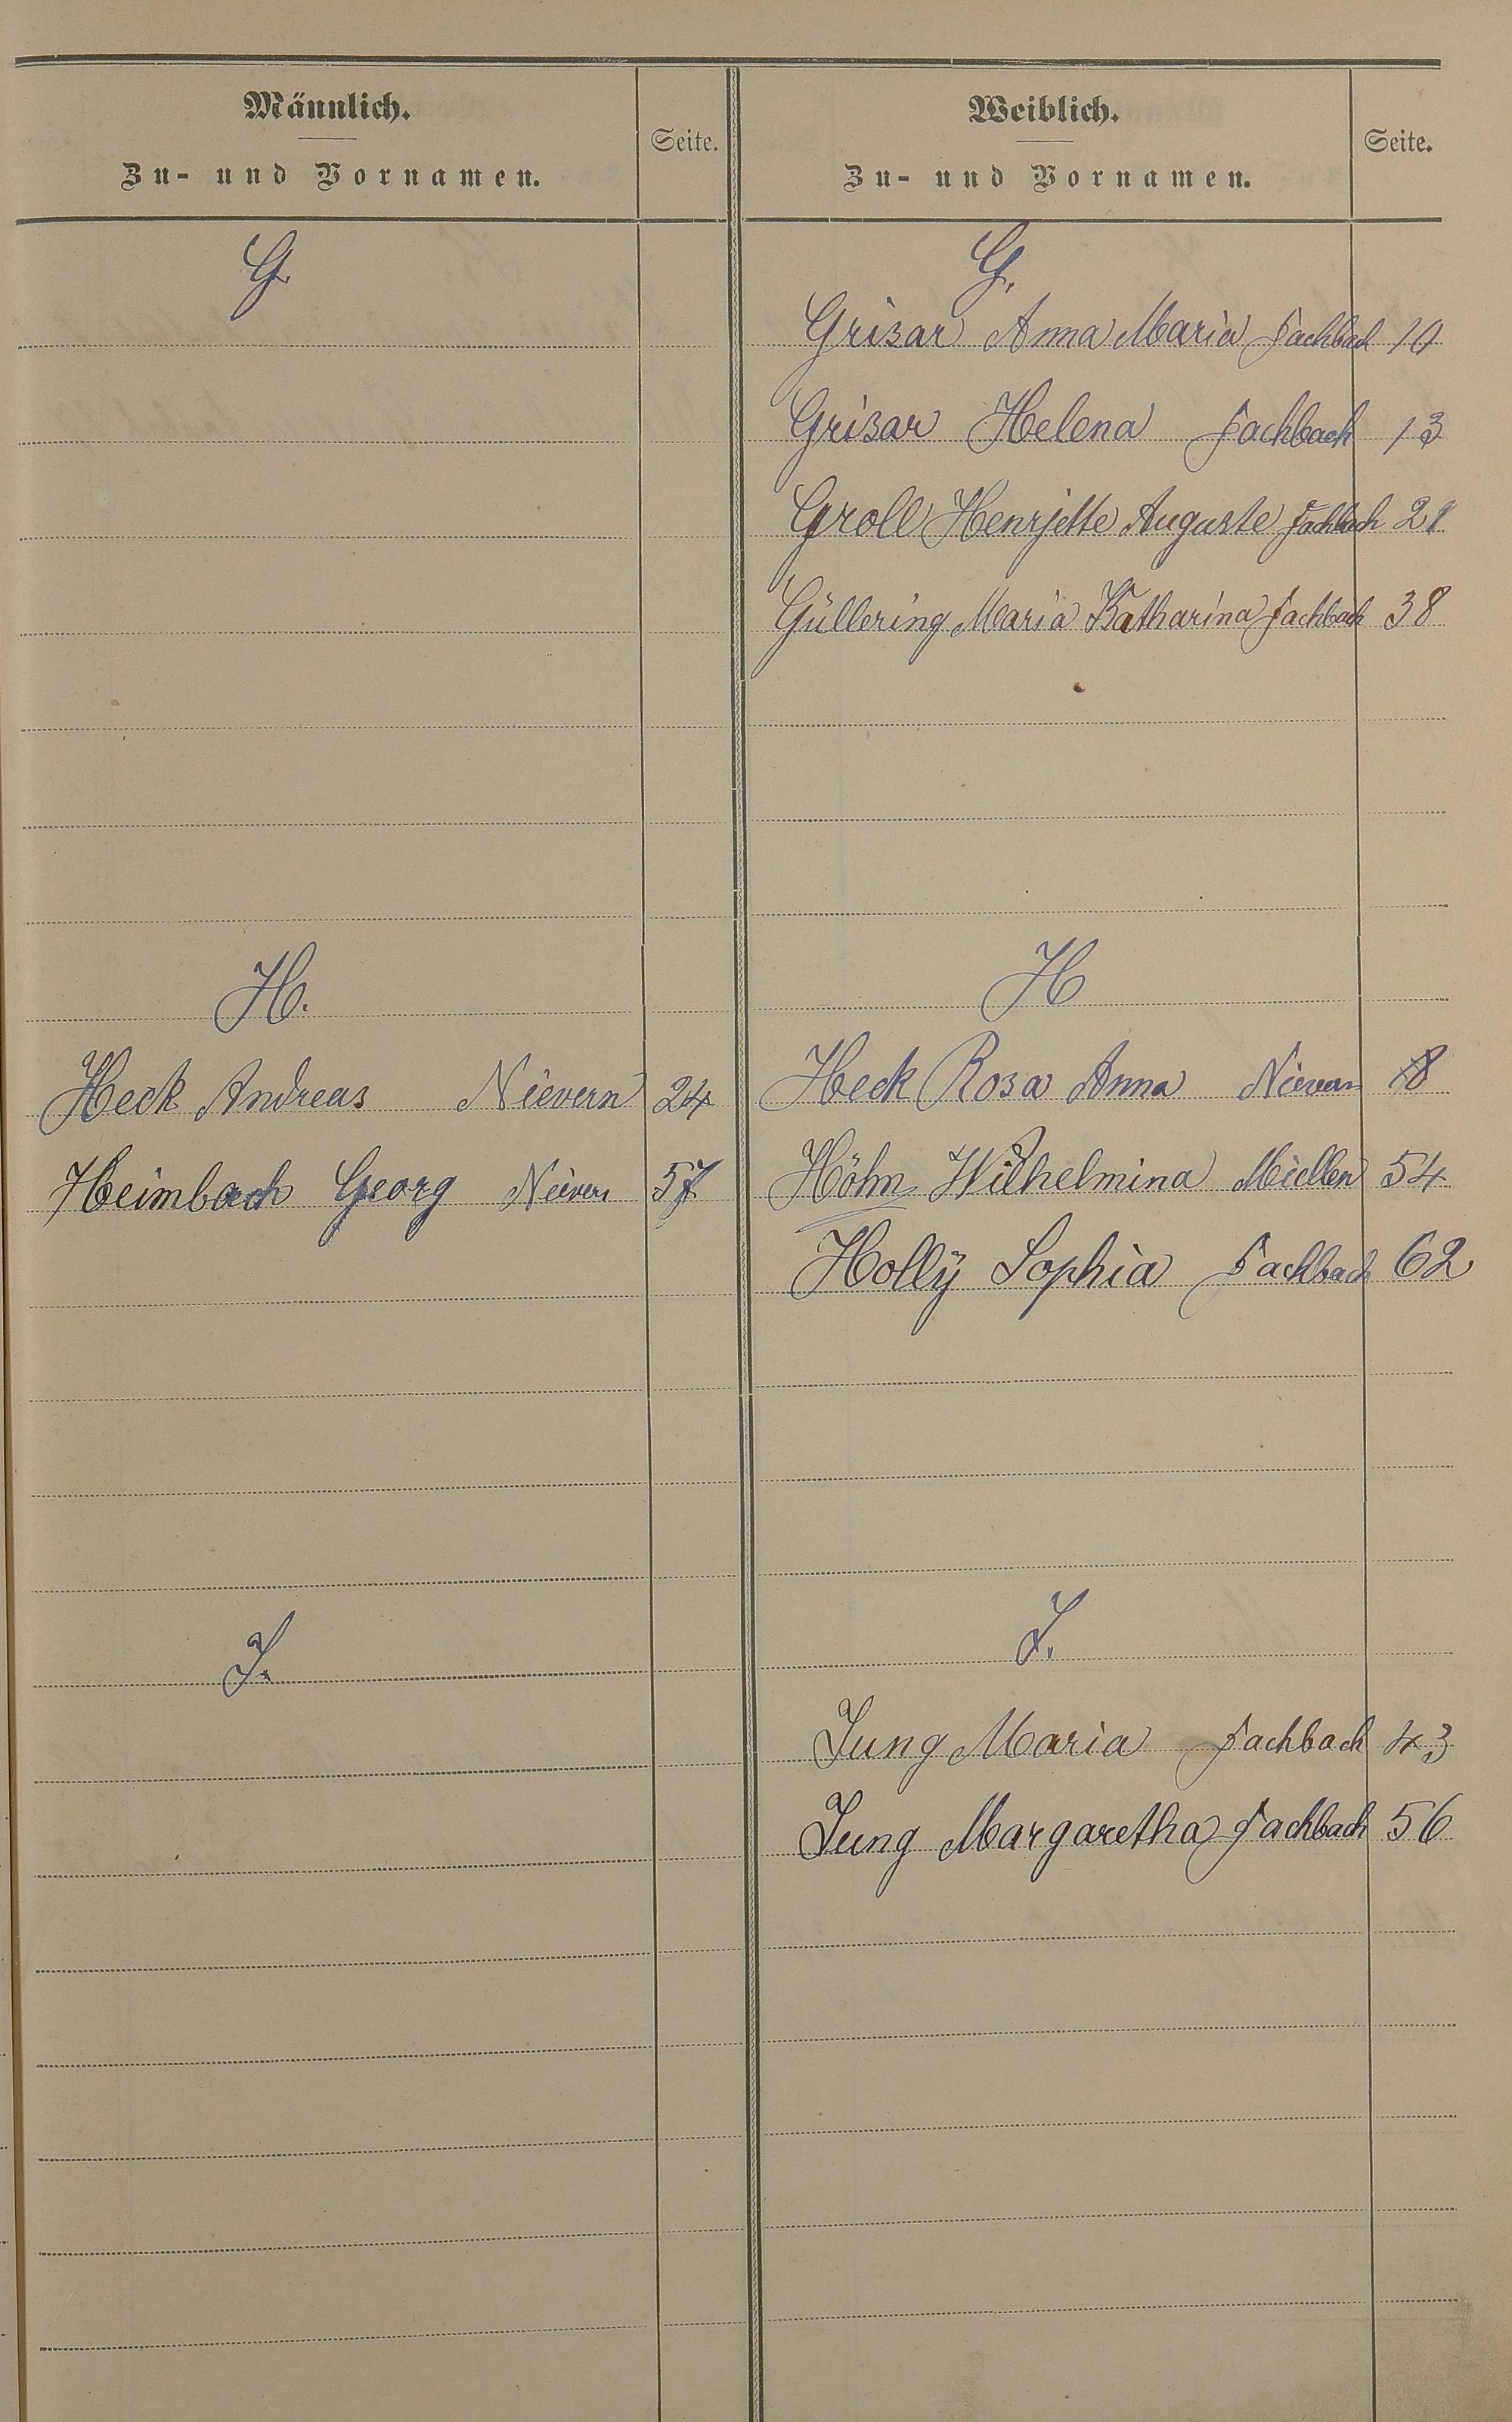 Männlich.
Zu- und Vornamen.
Seite.
Weiblich.
Zu- und Vornamen.
Seite.
G.
G.
Grisar Anna Maria Fachbach 10
Grisar Helena Fachbach 13
Groll Henrjette Auguste Fachbach 21
Güllering Maria Katharina Fachbach 38
H.
H
Heck Andreas Nievern 24
Heck Rosa Anna Nievern 18
Heimbach Georg Nievern 57
Höhn Wilhelmina Miellen 54
Hollÿ Sophia Fachbach 62
J.
J.
Jung Maria Fachbach 43
Jung Margaretha Fachbach 56